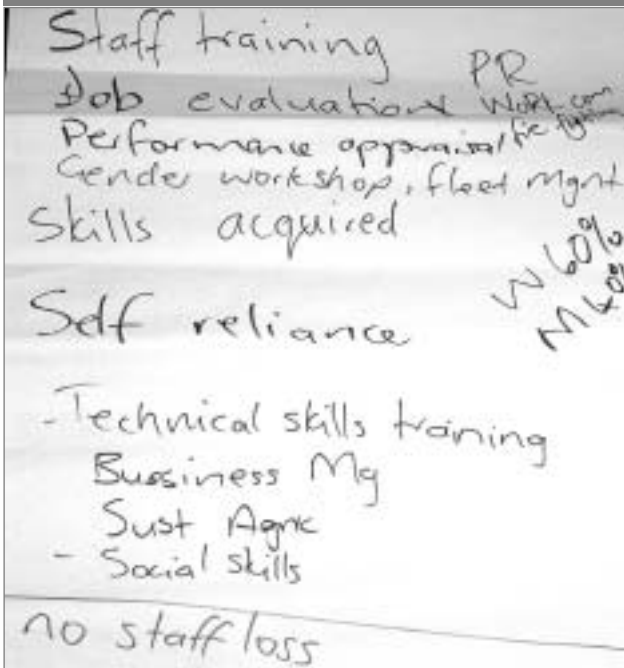 Staff training
PR
Job evaluation
Performance appraisal
Gender workshop, fleet Mgnt
Skills acquired
W 60%
M 40%
Self reliance
- Technical skills training
Bussiness Mg
Sust Agric
- Social skills
no staff loss